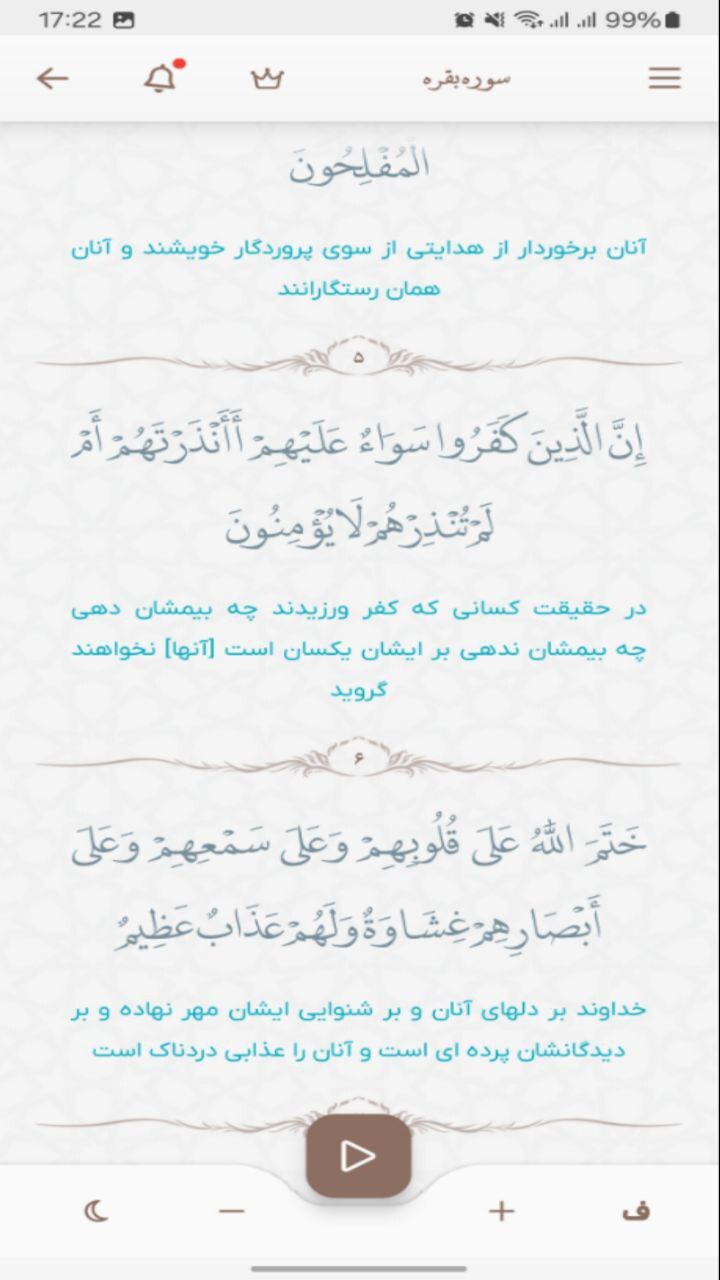 17:22
99%
سوره بقره
الْمُفْلِحُونَ
آنان برخوردار از هدایتی از سوی پروردگار خویشند و آنان
همان رستگارانند
۵
إِنَّ الَّذِينَ كَفَرُوا سَوَاءٌ عَلَيْهِمْ أَأَنْذَرْتَهُمْ أَمْ
لَمْ تُنْذِرْهُمْ لَا يُؤْمِنُونَ
در حقیقت کسانی که کفر ورزیدند چه بیمشان دهی
چه بیمشان ندهی بر ایشان یکسان است [آنها] نخواهند
گروید
۶
خَتَمَ اللَّهُ عَلَى قُلُوبِهِمْ وَعَلَى سَمْعِهِمْ وَعَلَى
أَبْصَارِهِمْ غِشَاوَةٌ وَلَهُمْ عَذَابٌ عَظِيمٌ
خداوند بر دلهای آنان و بر شنوایی ایشان مهر نهاده و بر
دیدگانشان پرده ای است و آنان را عذابی دردناک است
ف